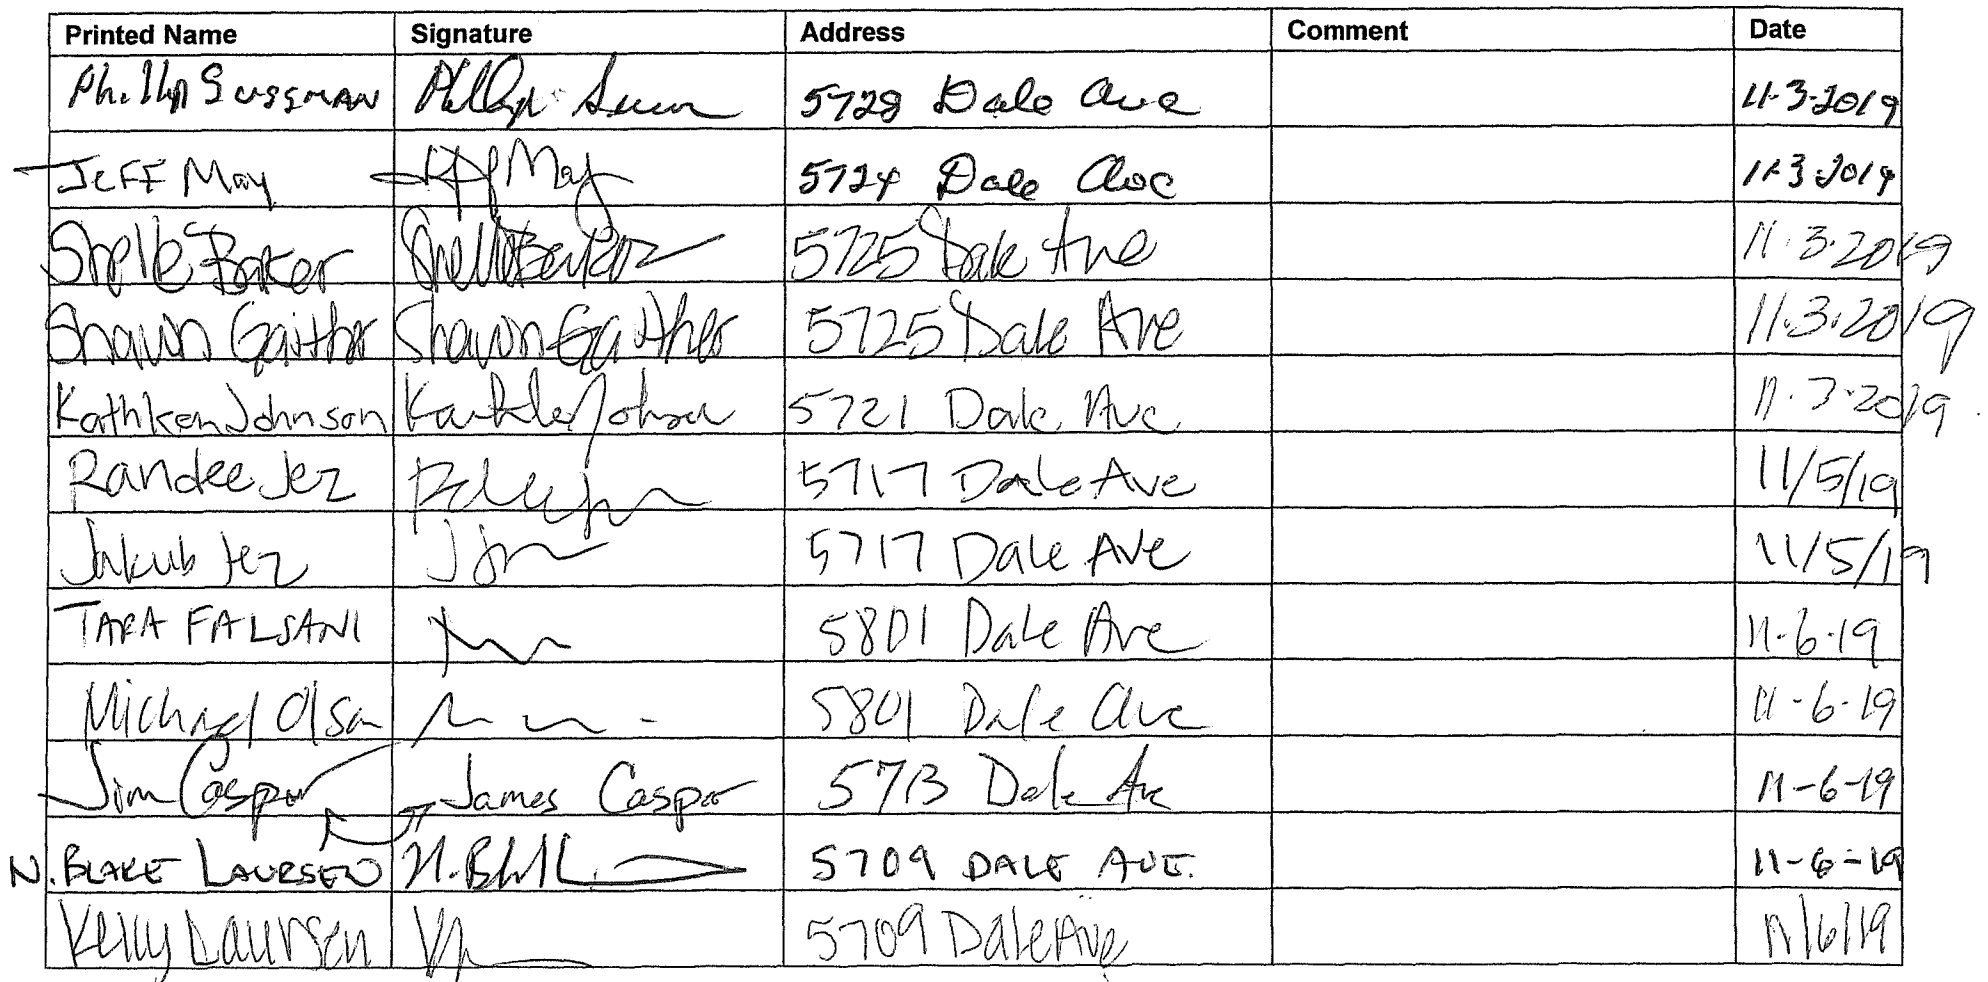 Printed Name Signature Address Comment Date
Phillip Sussman Phillip 5728 Dale Ave 11.3.2019
Jeff May Jeff May 5724 Dale Ave 11.3.2019
Shelle Baker Shelle Baker 5725 Dale Ave 11.3.2019
Shawn Gaither Shawn Gaither 5725 Dale Ave 11.3.2019
Kathleen Johnson Kathleen Johnson 5721 Dale Ave. 11.3.2019
Randee Jez 5717 Dale Ave 11/5/19
Jakub Jez 5717 Dale Ave 11/5/19
TARA FALSANI 5801 Dale Ave 11-6-19
Michael Olson 5801 Dale Ave 11-6-19
Jim Caspar James Caspar 5713 Dale Ave 11-6-19
N. BLAKE LAURSEN N. 5709 DALE AVE. 11-6-19
Kelly Laursen 5709 Dale Ave 11/6/19